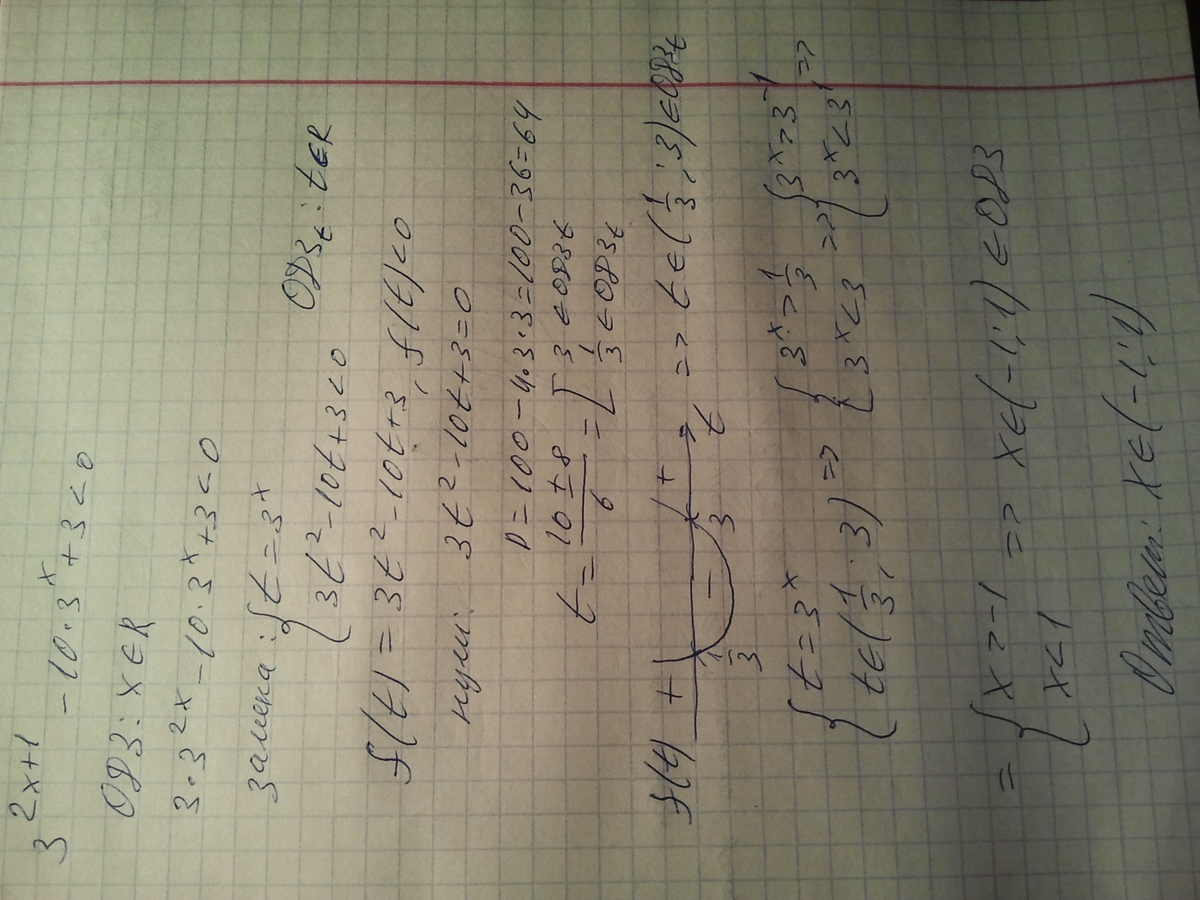 3^{2x+1} - 10·3^x + 3 < 0
ОДЗ: x ∈ R
3·3^{2x} - 10·3^x + 3 < 0
Замена: { t = 3^x
3t² - 10t + 3 < 0 ОДЗ_t: t ∈ R
f(t) = 3t² - 10t + 3, f(t) < 0
нули: 3t² - 10t + 3 = 0
D = 100 - 4·3·3 = 100 - 36 = 64
t = (10 ± 8)/6 = [ 3 ∈ ОДЗ_t
1/3 ∈ ОДЗ_t
f(t) + - + => t ∈ (1/3; 3) ∈ ОДЗ_t
1/3 3 t
{ t = 3^x
t ∈ (1/3; 3) => { 3^x > 1/3
3^x < 3 => { 3^x > 3^{-1}
3^x < 3^1 =>
= { x > -1
x < 1 => x ∈ (-1; 1) ∈ ОДЗ
Ответ: x ∈ (-1; 1)